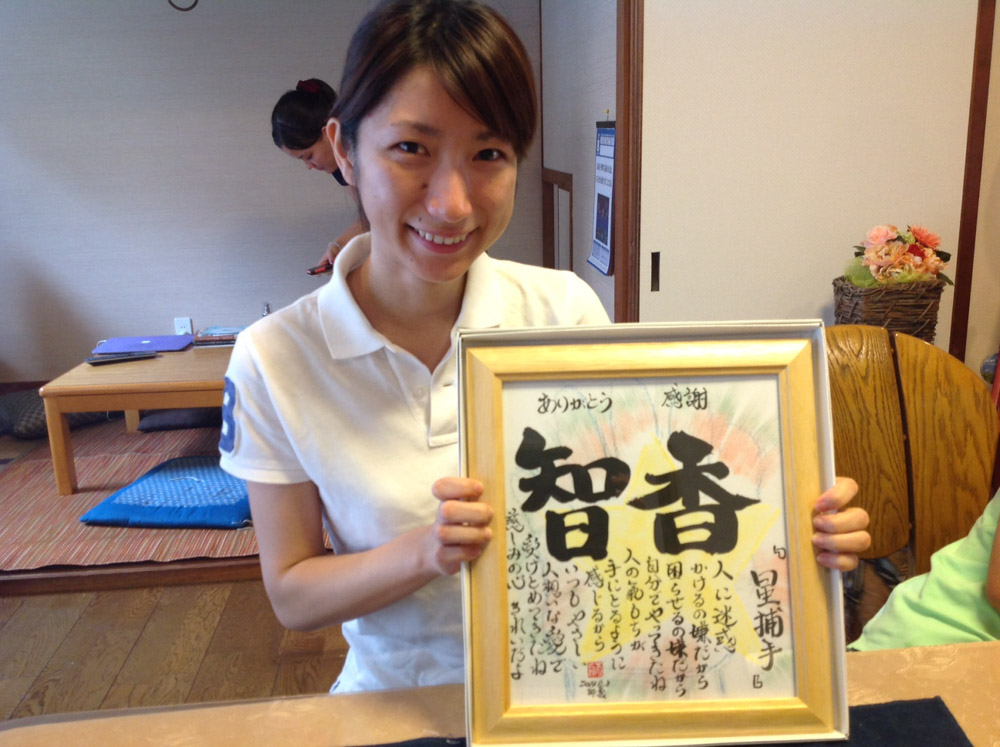 ありがとう 感謝
智香
「星捕手」
人に迷惑
かけるの嫌だから
困らせるの嫌だから
自分でやってきたね
人の氣もちが
手にとるように
感じるから
いつもやさしい
人想いな愛で
受けとめてきたね
慈しみの心 きれいだよ
B